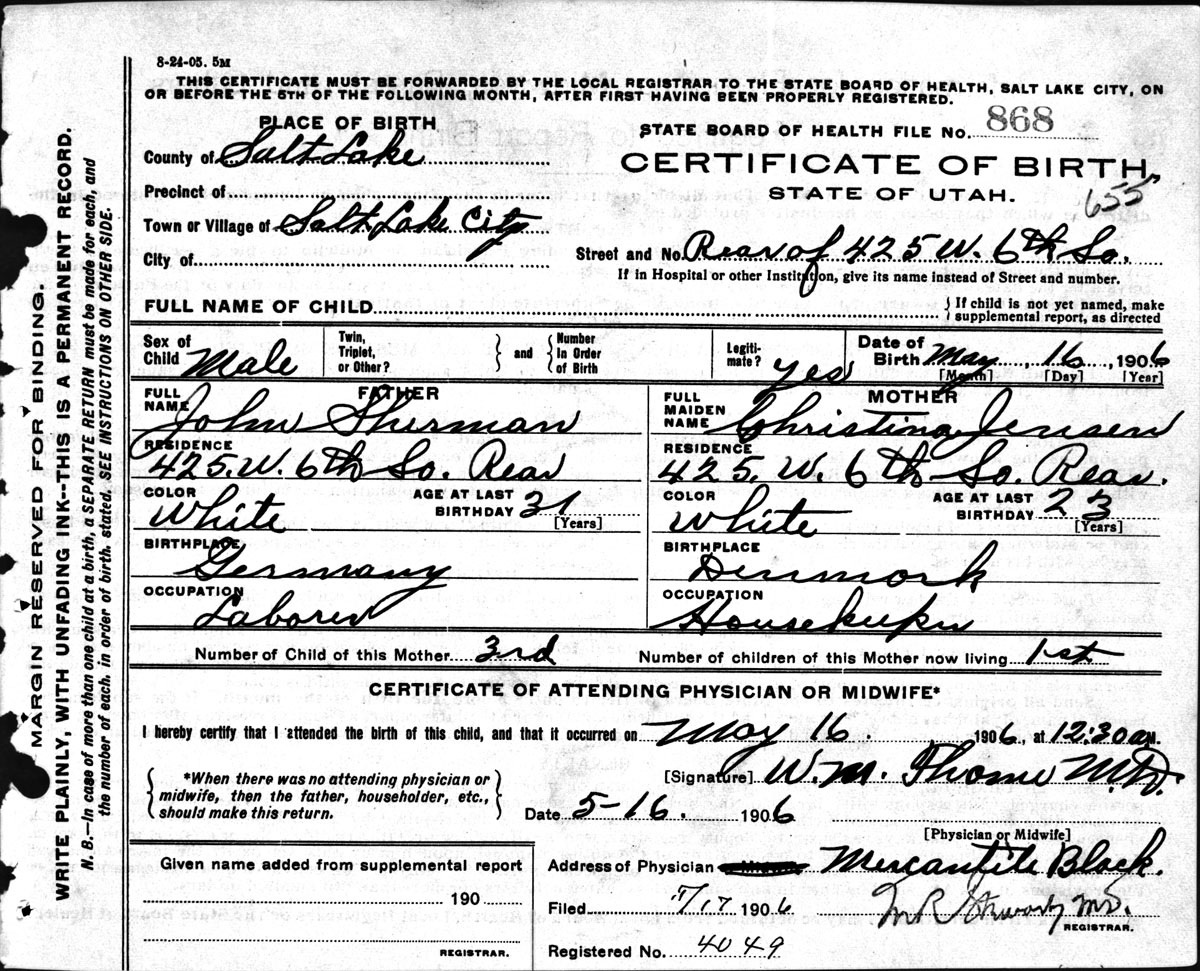 8-24-05. 5M
THIS CERTIFICATE MUST BE FORWARDED BY THE LOCAL REGISTRAR TO THE STATE BOARD OF HEALTH, SALT LAKE CITY, ON
OR BEFORE THE 5TH OF THE FOLLOWING MONTH, AFTER FIRST HAVING BEEN PROPERLY REGISTERED.
PLACE OF BIRTH
County of Salt Lake
Precinct of
Town or Village of Salt Lake City
City of
STATE BOARD OF HEALTH FILE No. 868
CERTIFICATE OF BIRTH,
STATE OF UTAH.
655
Street and No. Rear of 425 W. 6th So.
If in Hospital or other Institution, give its name instead of Street and number.
FULL NAME OF CHILD
If child is not yet named, make
supplemental report, as directed
Sex of Child Male
Twin, Triplet, or Other?
and
Number In Order of Birth
Legiti-mate? yes
Date of Birth May, 16, 1906
[Month] [Day] [Year]
FATHER
FULL NAME John Sherman
RESIDENCE
425. W. 6th So. Rear
COLOR White
AGE AT LAST BIRTHDAY 31
[Years]
BIRTHPLACE
Germany
OCCUPATION
Laborer
MOTHER
FULL MAIDEN NAME Christina Jensen
RESIDENCE
425. W. 6th So. Rear.
COLOR White
AGE AT LAST BIRTHDAY 23
[Years]
BIRTHPLACE
Denmark
OCCUPATION
Housekeeper
Number of Child of this Mother 3rd
Number of children of this Mother now living 1st
CERTIFICATE OF ATTENDING PHYSICIAN OR MIDWIFE*
I hereby certify that I attended the birth of this child, and that it occurred on May 16. , 1906, at 12:30 am.
*When there was no attending physician or
midwife, then the father, householder, etc.,
should make this return.
[Signature] W. M. Thome M.D.
Date 5-16. 1906
[Physician or Midwife]
Given name added from supplemental report
190
REGISTRAR.
Address of Physician Mercantile Block.
Filed 7/17 1906
M R M.D.
REGISTRAR.
Registered No. 4049
MARGIN RESERVED FOR BINDING
WRITE PLAINLY, WITH UNFADING INK--THIS IS A PERMANENT RECORD.
N. B.—In case of more than one child at a birth, a SEPARATE RETURN must be made for each, and
the number of each, in order of birth, stated. SEE INSTRUCTIONS ON OTHER SIDE.